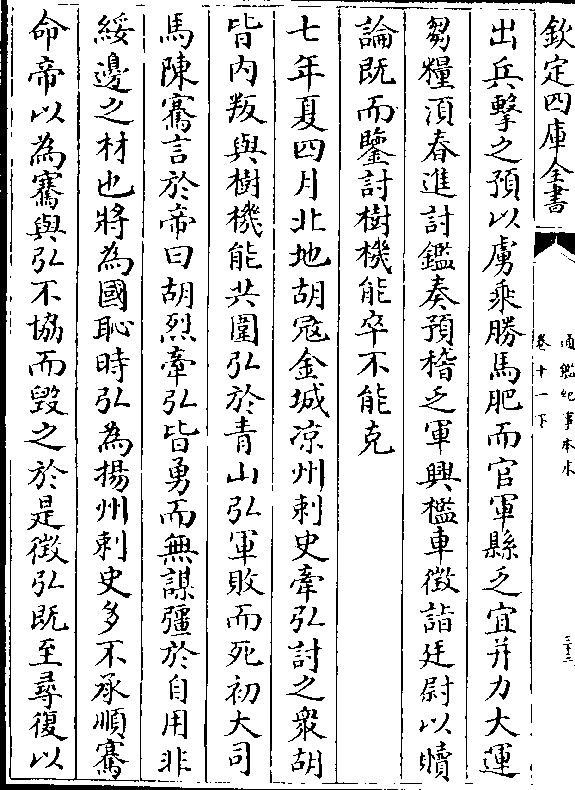 欽定四庫全書
通鑑紀事本末
卷十一下
三十三
出兵擊之預以虜乘勝馬肥而官軍縣乏宜并力大運
芻糧須春進討鑑奏預稽乏軍興檻車徵詣廷尉以贖
論既而鑒討樹機能卒不能克
七年夏四月北地胡寇金城凉州刺史牽弘討之衆胡
皆内叛與樹機能共圍弘於青山弘軍敗而死初大司
馬陳騫言於帝曰胡烈牽弘皆勇而無謀彊於自用非
綏邊之材也將為國恥時弘為揚州刺史多不承順騫
命帝以為騫與弘不協而毁之於是徵弘既至尋復以